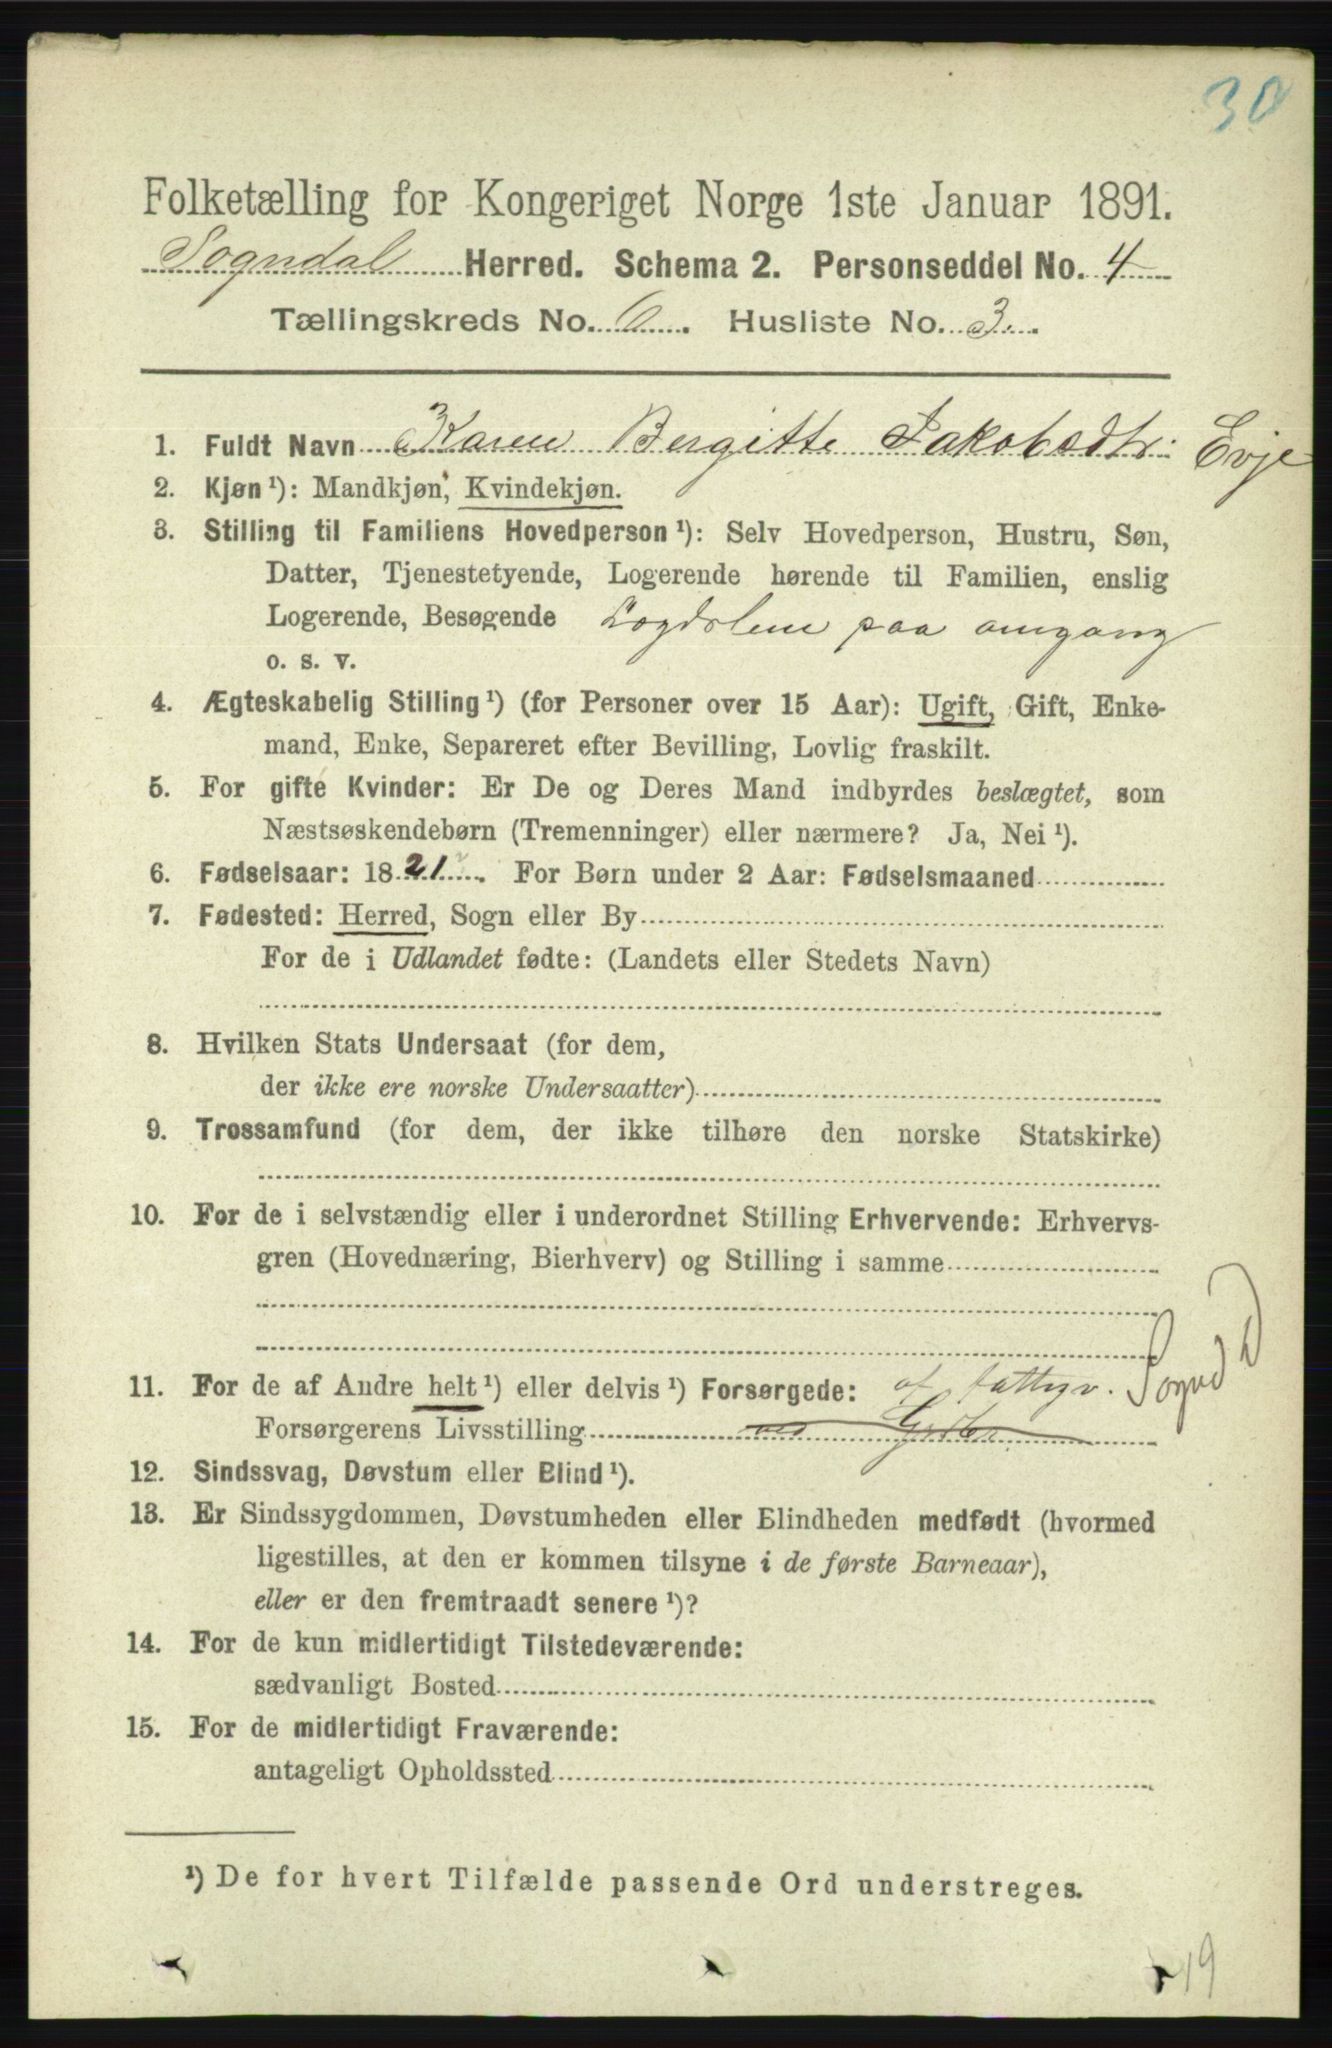 30
Folketælling for Kongeriget Norge 1ste Januar 1891.
Sogndal Herred. Schema 2. Personseddel No. 4
Tællingskreds No. 6. Husliste No. 3.
1. Fuldt Navn Karen Bergitte Jakobsdtr. Evje
2. Kjøn ¹): Mandkjøn, Kvindekjøn.
3. Stilling til Familiens Hovedperson ¹): Selv Hovedperson, Hustru, Søn,
Datter, Tjenestetyende, Logerende hørende til Familien, enslig
Logerende, Besøgende Lægdslem paa omgang
o. s. v.
4. Ægteskabelig Stilling ¹) (for Personer over 15 Aar): Ugift, Gift, Enke-
mand, Enke, Separeret efter Bevilling, Lovlig fraskilt.
5. For gifte Kvinder: Er De og Deres Mand indbyrdes beslægtet, som
Næstsøskendebørn (Tremenninger) eller nærmere? Ja, Nei ¹).
6. Fødselsaar: 1821. For Børn under 2 Aar: Fødselsmaaned
7. Fødested: Herred, Sogn eller By
For de i Udlandet fødte: (Landets eller Stedets Navn)
8. Hvilken Stats Undersaat (for dem,
der ikke ere norske Undersaatter)
9. Trossamfund (for dem, der ikke tilhøre den norske Statskirke)
10. For de i selvstændig eller i underordnet Stilling Erhvervende: Erhvervs-
gren (Hovednæring, Bierhverv) og Stilling i samme
11. For de af Andre helt ¹) eller delvis ¹) Forsørgede: af fattigv. Sognd D
Forsørgerens Livsstilling
12. Sindssvag, Døvstum eller Blind ¹).
13. Er Sindssygdommen, Døvstumheden eller Blindheden medfødt (hvormed
ligestilles, at den er kommen tilsyne i de første Barneaar),
eller er den fremtraadt senere ¹)?
14. For de kun midlertidigt Tilstedeværende:
sædvanligt Bosted
15. For de midlertidigt Fraværende:
antageligt Opholdssted
¹) De for hvert Tilfælde passende Ord understreges.
19